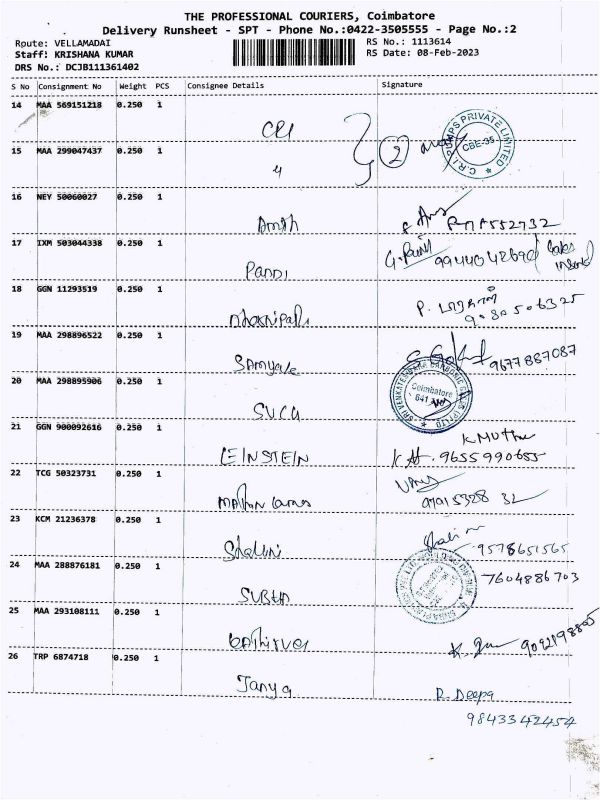 THE PROFESSIONAL COURIERS, Coimbatore
Delivery Runsheet - SPT - Phone No.:0422-3505555 - Page No.:2
Route: VELLAMADAI
Staff: KRISHANA KUMAR
DRS No.: DCJB111361402
RS No.: 1113614
RS Date: 08-Feb-2023
S No Consignment No Weight PCS Consignee Details Signature
14 MAA 569151218 0.250 1
CRI
2
C.R.I. PUMPS PRIVATE LIMITED
CBE-35
15 MAA 299047437 0.250 1
16 NEY 50060027 0.250 1
Amith
17 IXM 503044338 0.250 1
PANDI
9944042690
18 GGN 11293519 0.250 1
P.
19 MAA 298896522 0.250 1
9677887087
20 MAA 298895906 0.250 1
SVCG
SRI VENKATESWARA CARBONIC GASES PVT LTD
Coimbatore
641
21 GGN 900092616 0.250 1
EINSTEIN
K Muthu
9655990655
22 TCG 50323731 0.250 1
23 KCM 21236378 0.250 1
Shalini
9578651565
24 MAA 288876181 0.250 1
SUBHA
7604886703
25 MAA 293108111 0.250 1
Kathirvel
26 TRP 6874718 0.250 1
Tanya
R. Deepa
9843342454